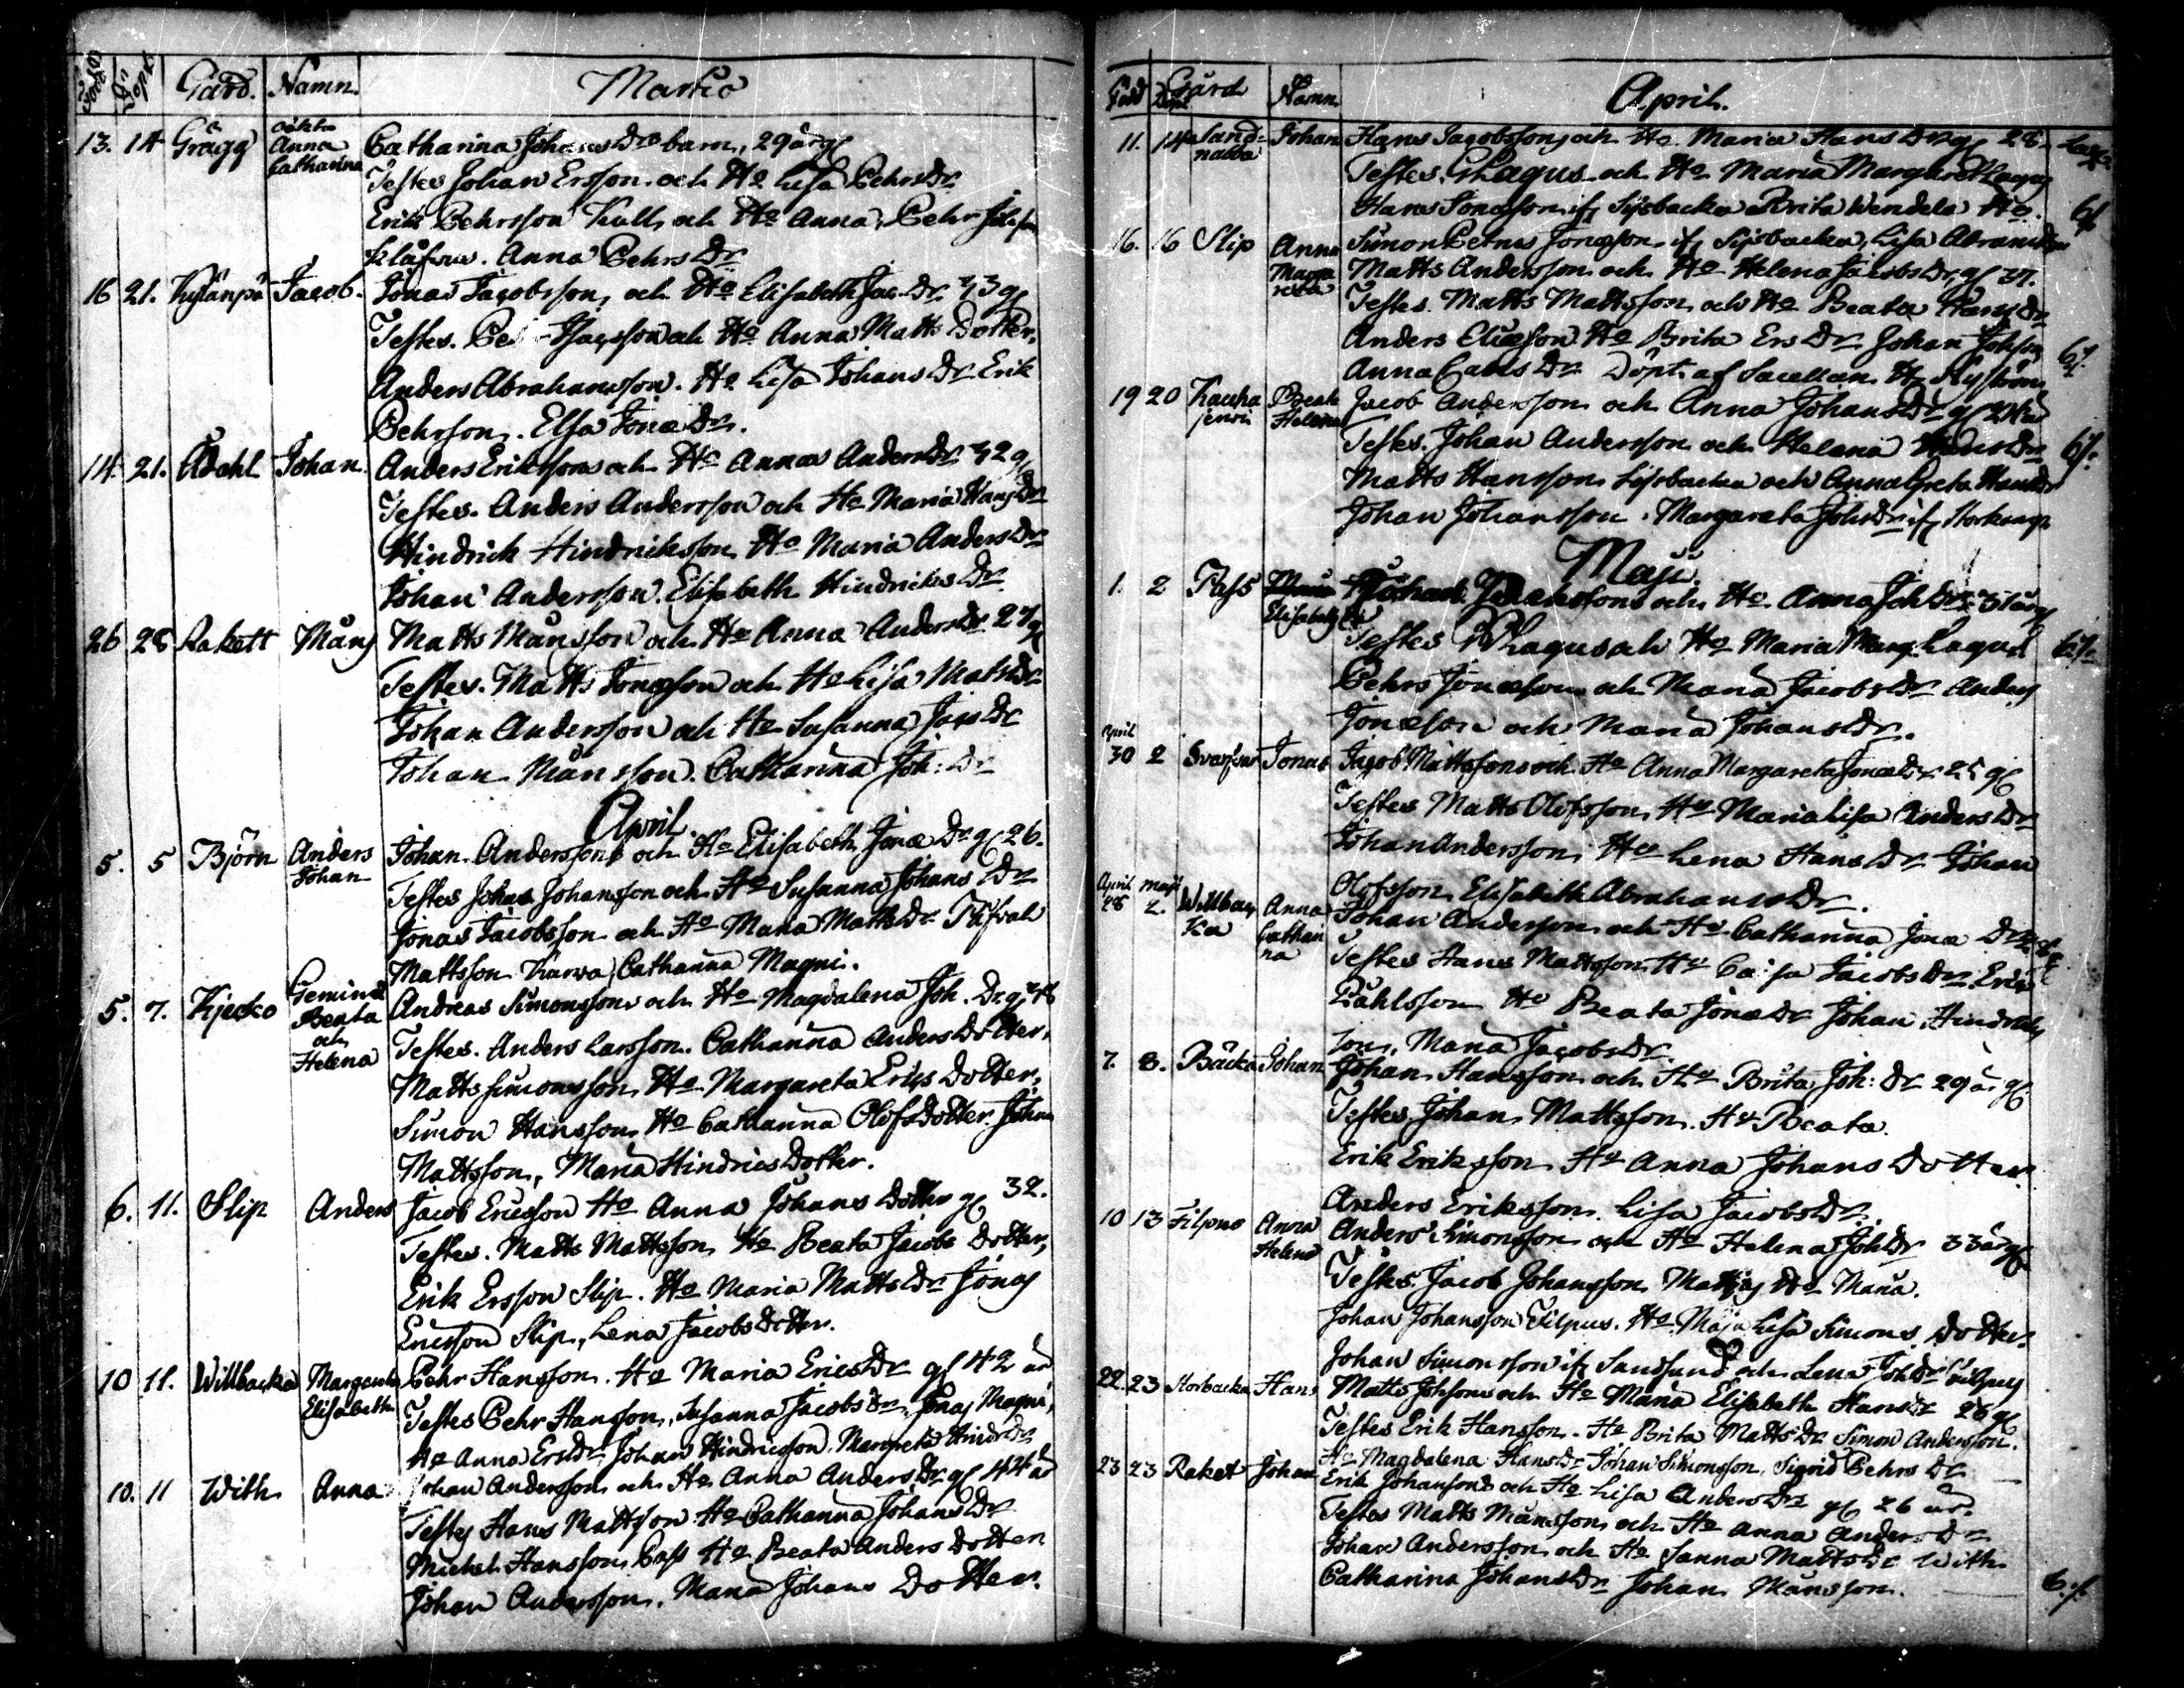 Född Döpt Gård. Namn. Martio
13. 14 Grägg oäkta Anna Catharina Catharina Johans Dr barn, 29 år gl
Testes Johan Ersson och Ho Lisa Pehrs Dr
Erik Pehrsson Kull och Ho Anna, Pehr
Anna Pehrs Dr
16 21. Kylänpä Jacob. Jonas Jacobsson, och Ho Elisabeth Jac. Dr 33 gl
Testes. och Ho Anna Matts Dotter,
Anders Abrahamsson. Ho Lisa Johans Dr Erik
Pehrsson. Elsa Jonæ Dr.
14. 21. Ådahl Johan. Anders Eriksson och Ho Anna Anders Dr 32 gl
Testes. Anders Andersson och Ho Maria Hans Dr
Hindrick Hindricksson Ho Maria Anders Dr
Johan Andersson. Elisabeth Hindricks Dr
26 28 Rakett Måns Matts Månsson och Ho Anna Anders Dr 27 gl
Testes. Matts Jonæson och Ho Lisa Matts Dr
Johan Andersson och Ho Susanna Jacs Dr
Johan Månsson. Catharina Joh: Dr
April.
5. 5 Björn Anders Johan Johan Andersson och Ho Elisabeth Jonæ Dr gl 26.
Testes Johan Johansson och Ho Susanna Johans Dr
Jonas Jacobsson och Ho Maria Matts Dr
Mattsson Karva, Catharina Magni.
5. 7. Kjecko Gemini Beata och Helena Andreas Simonsson och Ho Magdalena Joh. Dr gl
Testes. Anders Larsson. Catharina Anders Dotter,
Matts Simonsson Ho Margareta Erics Dotter,
Simon Hansson Ho Catharina Olofs Dotter. Johan
Mattsson, Maria Hindrics Dotter.
6. 11. Slip Anders Jacob Ericsson Ho Anna Johans Dotter gl 32.
Testes. Matts Mattsson Ho Beata Jacobs Dotter,
Erik Ersson Slip. Ho Maria Matts Dr Jonas
Ericsson Slip, Lena Jacobs Dotter.
10 11. Willbacka Margareta Elisabeth Pehr Hansson. Ho Maria Erics Dr gl 42 år
Testes Pehr Hansson, Susanna Jacobs Dr Jonas Magni,
Ho Anna Ers Dr Johan Hindricsson. Margreta Hindr. Dr
10. 11 With Anna Johan Andersson och Ho Anna Anders Dr gl 44 år
Testes Hans Mattsson Ho Catharina Johans Dr
Michel Hansson Pass Ho Beata Anders Dotter
Johan Andersson. Maria Johans Dotter.
Född Döpt Gård Namn April.
11. 14 Sandnabba Johan Hans Jacobsson och Ho Maria Hans Dr gl 28.
Testes. Lagus och Ho Maria Margaret Lagus
Hans Jonæson if Sijsbacka Brita Wendela Ho.
Simon Petrus Jonæson if Sijsbacka, Lisa Abrams Dr
16. 16 Slip Anna Margareta Matts Andersson och Ho Helena Jacobs Dr gl 37.
Testes. Matts Mattsson och Ho Beata Hans Dr
Anders Eliæson Ho Brita Ers Dr Johan Johsson
Anna Dr Döpt af Sacellan Hr Nyström
19 20 Kauhajervi Beata Helena Jacob Andersson och Anna Johans Dr gl
Testes. Johan Andersson och Helena Dr
Matts Hansson Sijsbacka och Anna Greta Hans Dr
Johan Johansson. Margareta Johs Dr if
Maji.
1. 2 Pass Elisabeth och Ho Anna Joh Dr 31 år gl
Testes Lagus och Ho Maria Marg. Lagus
Pehr Jonæson och Maria Jacobs Dr Anders
Jonæson och Maria Johans Dr.
April 30 2 Svarfvar Jonas Jacob Mattsson och Ho Anna Margareta Jonæ Dr 25 gl
Testes Matts Olofsson, Ho Maria Lisa Anders Dr
Johan Andersson Ho Lena Hans Dr Johan
Olofsson Elisabeth Abrahams Dr.
April 28 Maji 2. Willbacka Anna Catharina Johan Andersson och Ho Catharina Jonæ Dr
Testes Hans Mattsson Ho Caisa Jacobs Dr Eric
Påhlsson Ho Beata Jonæ Dr Johan Hindricks
son, Maria Jacobs Dr.
7. 8. Backa Johan Johan Hansson och Ho Brita Joh: Dr 29 år gl
Testes Johan Mattsson. Ho Beata.
Erik Eriksson Ho Anna Johans Dotter.
Anders Eriksson. Lisa Jacobs Dr.
10 13 Filpus Anna Helena Anders Simonsson och Ho Helena Joh Dr 33 år gl
Testes. Jacob Johansson Ho Maria.
Johan Johansson Filpus. Ho Maja Lisa Simons Dotter
Johan Simonsson if Sandsund och Lena Joh Dr Filpus
22. 23 Storbacka Hans Matts Johsson och Ho Maria Elisabeth Hans Dr 26 gl
Testes Erik Hansson. Ho Brita Matts Dr Simon Andersson.
Ho Magdalena Hans Dr Johan Simonsson, Sigrid Pehrs Dr
23 23 Raket Johan Erik Johansson och Ho Lisa Anders Dr gl 26 år.
Testes Matts Månsson och Ho Anna Anders Dr
Johan Andersson och Ho Sanna Matts Dr With
Catharina Johans Dr Johan Månsson.